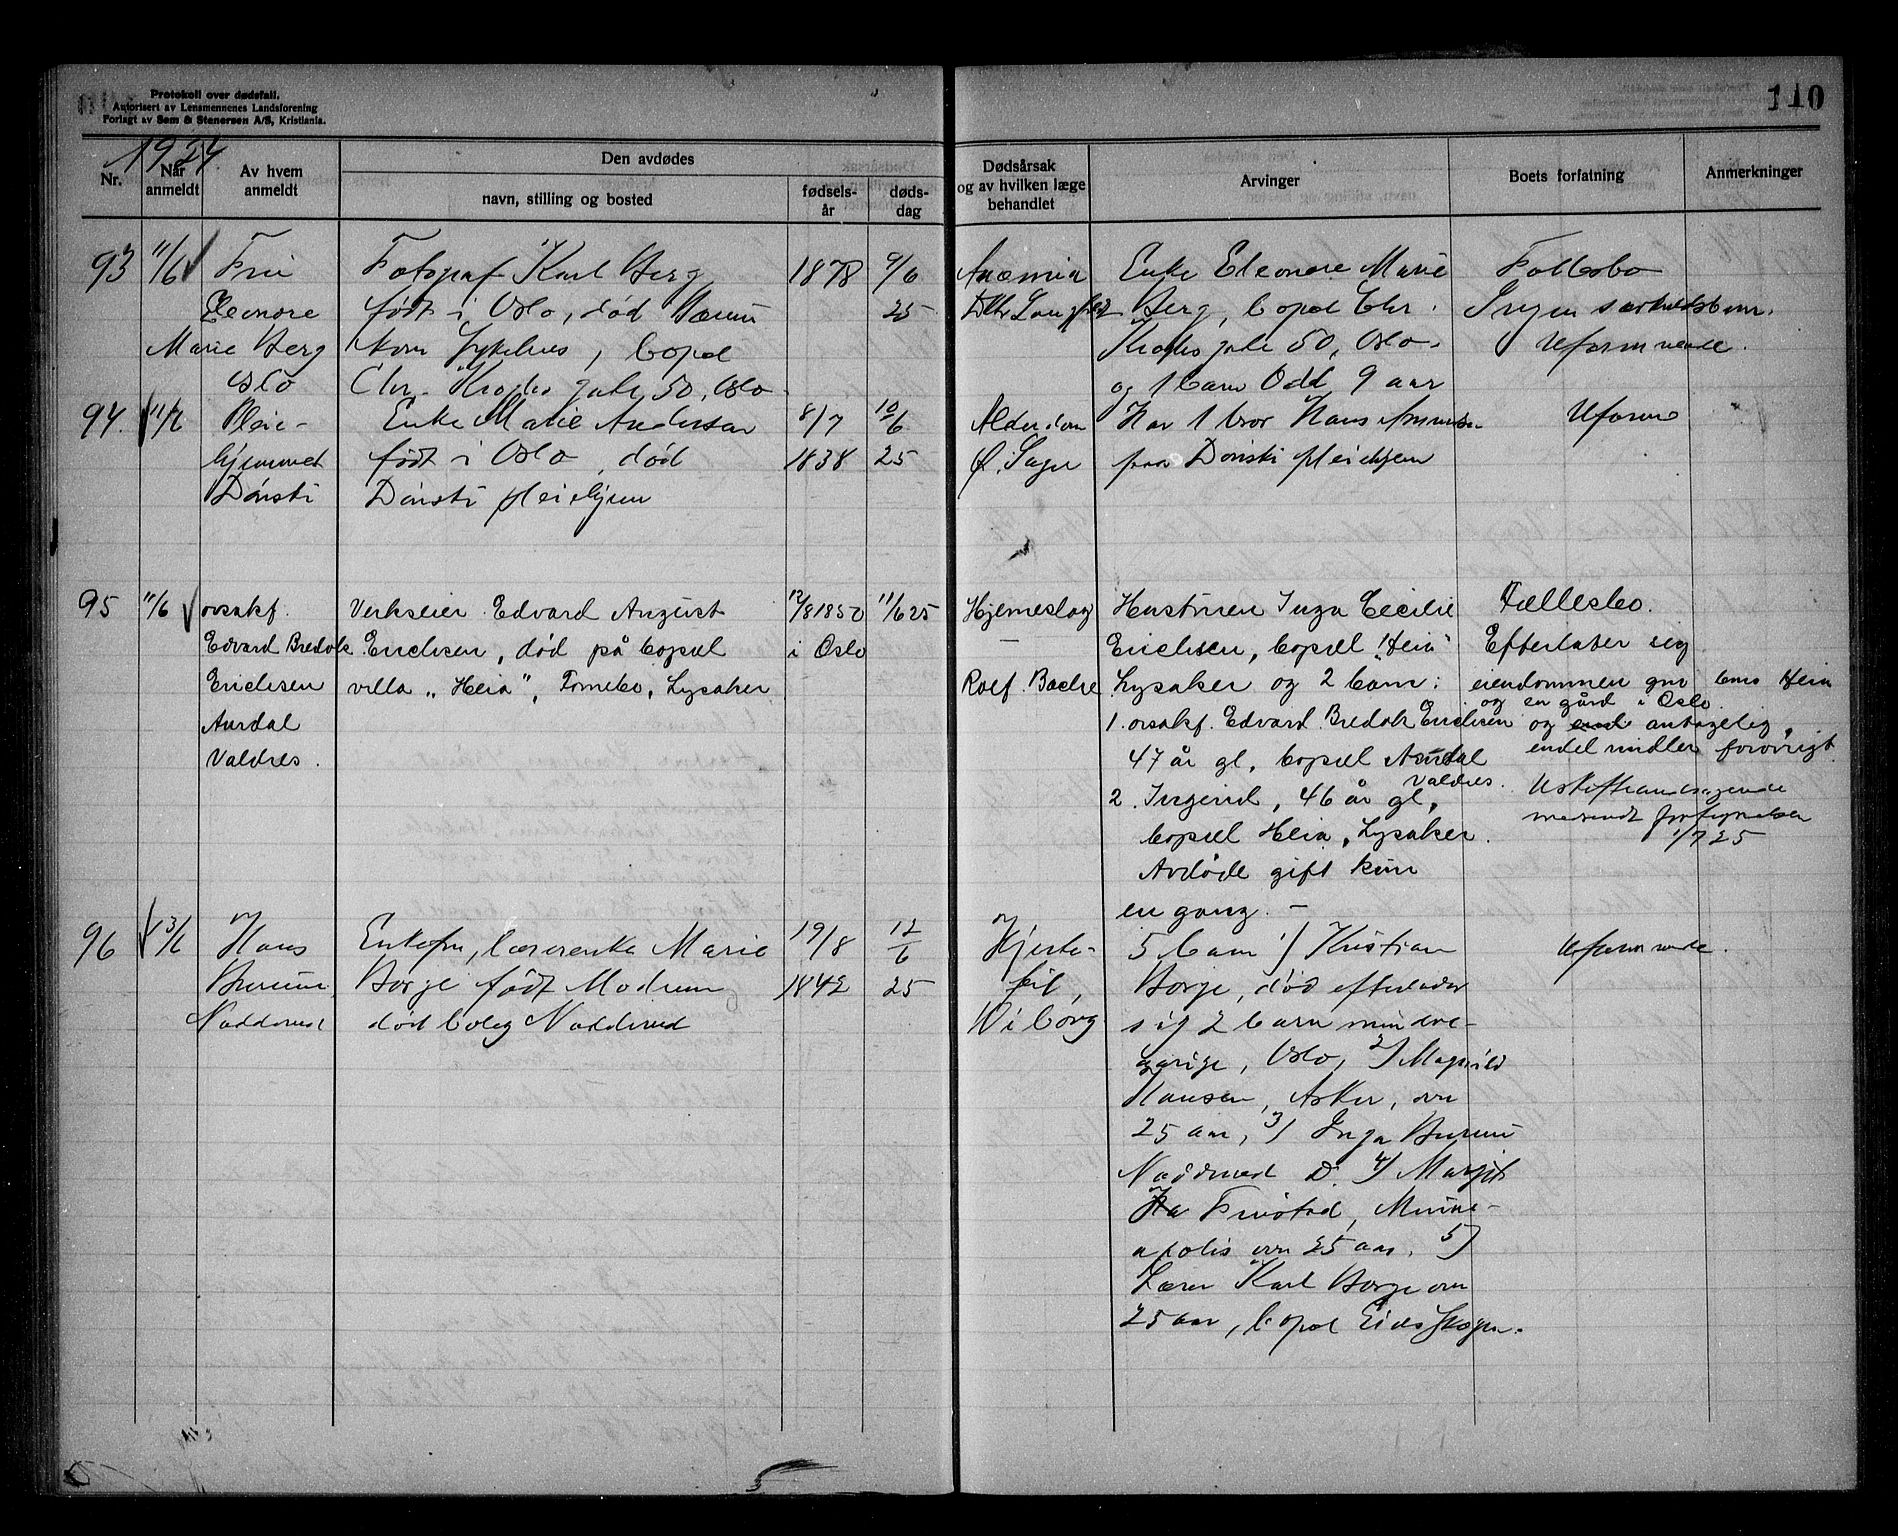 Protokoll over dødsfall.
Autorisert av Lensmennenes Landsforening
Forlagt av Sem & Stenersen A/S, Kristiania.
110
1924.
Nr.
Når anmeldt
Av hvem anmeldt
Den avdødes
navn, stilling og bosted
fødsels-år
døds-dag
Dødsårsak og av hvilken læge behandlet
Arvinger
Boets forfatning
Anmerkninger
93 11/6 Fru Fotograf Karl Berg 1878 9/6 Anæmia Enke Eleonore Marie Fællesbo
Eleonore født i Oslo, død Bærum 25 Berg, bopæl Chr. Ingen særkuldsbarn.
Marie Berg kom Sykehus, bopæl Kroghs gate 50, Oslo Uformuende.
Oslo Chr. Kroghs gate 50, Oslo og 1 barn Odd 9 aar
94. 11/6 Pleie- Enke Marie Andersen 8/7 10/6 Alderdom Har 1 bror Hans Uform
hjemmet født i Oslo, død 1838 25 paa Dønski pleiehjem
Dønski Dønski pleiehjem
95 11/6 orsakf. Verkseier Edvard August 12/8 1850 11/6 25 Hjerneslag Hustruen Inga Cecilie Fællesbo.
Edvard Bredok Erichsen, død på bopæl i Oslo — Erichsen, bopæl "Heia" Efterlater sig
Erichsen villa "Heia", Fornebo, Lysaker Rolf. Bache Lysaker og 2 barn: eiendommen gnr bnr Heia
og en gård i Oslo.
Aurdal 1. orsakf. Edvard Bredok Erichsen og antagelig
Valdres. 47 år gl, bopæl Aurdal endel midler forøvrigt
Valdres.
2. Ingerid, 46 år gl,
bopæl Heia, Lysaker.
1/7 25
Avdøde gift kun
en gang. —
96 13/6 Hans Enkefru, lærerenke Marie 19/8 12/6 Hjerte- 5 barn 1) Kristian Uformuende.
Burum Borge født Modum 1842 25 feil, Borge, død efterlader
Nadderud død bolig Nadderud Wiborg sig 2 barn mindre-
aarige, Oslo, 2) Magnild
Hansen, Asker, over
25 aar, 3) Inga Burum
Nadderud D. 4) Margit
Finstad, Minne-
apolis over 25 aar, 5)
Lærer Karl Borge over
25 aar, bopæl Eidsskogen.